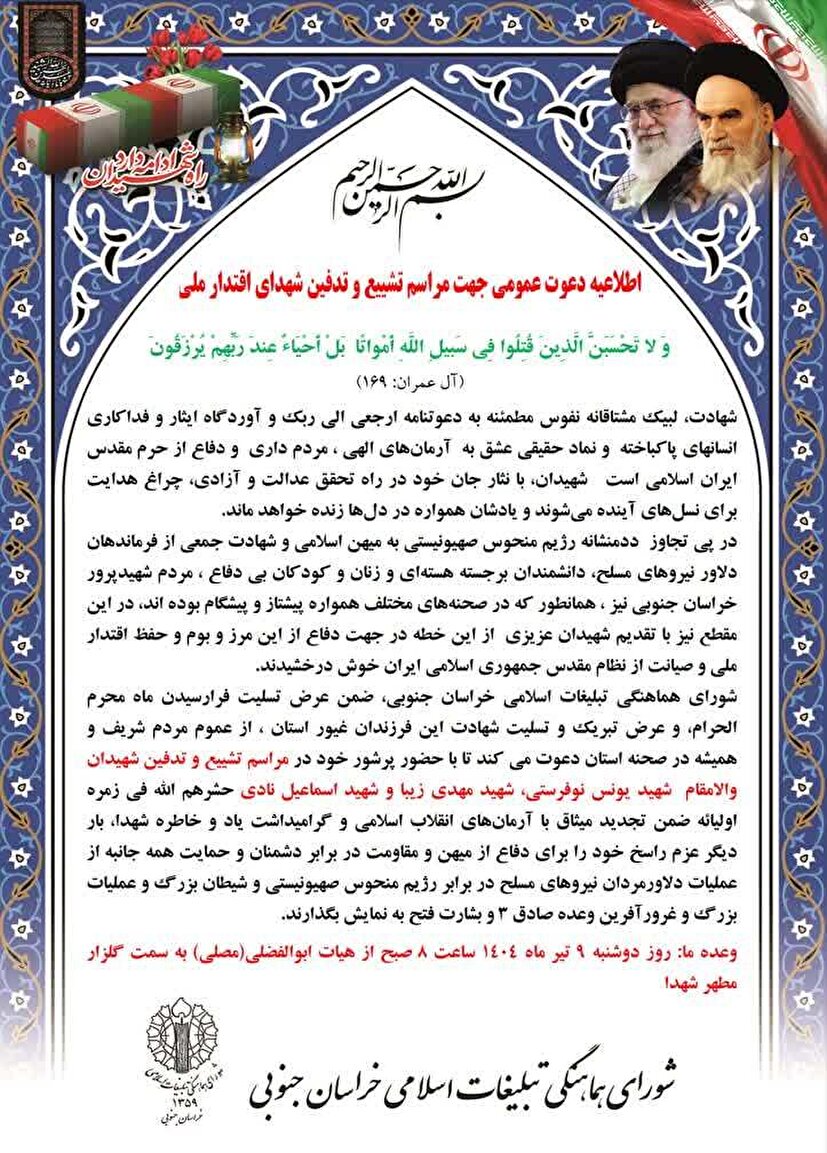 راه شهیدان ادامه دارد
بسم الله الرحمن الرحیم
اطلاعیه دعوت عمومی جهت مراسم تشییع و تدفین شهدای اقتدار ملی
وَ لا تَحْسَبَنَّ الَّذِینَ قُتِلُوا فِی سَبِیلِ اللَّهِ أمْواتًا بَلْ أحْیَاءٌ عِندَ رَبِّهِمْ یُرْزَقُونَ
(آل عمران: ۱۶۹)
شهادت، لبیک مشتاقانه نفوس مطمئنه به دعوتنامه ارجعی الی ربک و آوردگاه ایثار و فداکاری
انسانهای پاکباخته و نماد حقیقی عشق به آرمان‌های الهی ، مردم داری و دفاع از حرم مقدس
ایران اسلامی است شهیدان، با نثار جان خود در راه تحقق عدالت و آزادی، چراغ هدایت
برای نسل‌های آینده می‌شوند و یادشان همواره در دل‌ها زنده خواهد ماند.
در پی تجاوز ددمنشانه رژیم منحوس صهیونیستی به میهن اسلامی و شهادت جمعی از فرماندهان
دلاور نیروهای مسلح، دانشمندان برجسته هسته‌ای و زنان و کودکان بی دفاع ، مردم شهیدپرور
خراسان جنوبی نیز ، همانطور که در صحنه‌های مختلف همواره پیشتاز و پیشگام بوده اند، در این
مقطع نیز با تقدیم شهیدان عزیزی از این خطه در جهت دفاع از این مرز و بوم و حفظ اقتدار
ملی و صیانت از نظام مقدس جمهوری اسلامی ایران خوش درخشیدند.
شورای هماهنگی تبلیغات اسلامی خراسان جنوبی، ضمن عرض تسلیت فرارسیدن ماه محرم
الحرام، و عرض تبریک و تسلیت شهادت این فرزندان غیور استان ، از عموم مردم شریف و
همیشه در صحنه استان دعوت می کند تا با حضور پرشور خود در مراسم تشییع و تدفین شهیدان
والامقام شهید یونس نوفرستی، شهید مهدی زیبا و شهید اسماعیل نادی حشرهم الله فی زمره
اولیائه ضمن تجدید میثاق با آرمان‌های انقلاب اسلامی و گرامیداشت یاد و خاطره شهدا، بار
دیگر عزم راسخ خود را برای دفاع از میهن و مقاومت در برابر دشمنان و حمایت همه جانبه از
عملیات دلاورمردان نیروهای مسلح در برابر رژیم منحوس صهیونیستی و شیطان بزرگ و عملیات
بزرگ و غرورآفرین وعده صادق ۳ و بشارت فتح به نمایش بگذارند.
وعده ما: روز دوشنبه ۹ تیر ماه ۱۴۰۴ ساعت ۸ صبح از هیات ابوالفضلی(مصلی) به سمت گلزار
مطهر شهدا
شورای هماهنگی تبلیغات اسلامی خراسان جنوبی
شورای هماهنگی تبلیغات اسلامی
۱۳۵۹
خراسان جنوبی